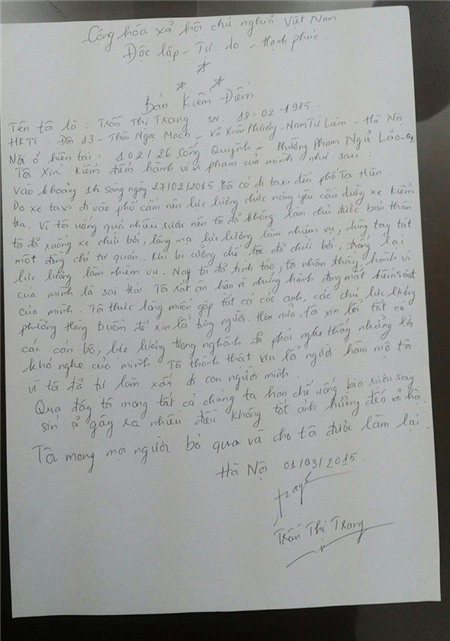 Cộng hòa xã hội chủ nghĩa Việt Nam
Độc lập - Tự do - Hạnh phúc
Bản Kiểm Điểm
Tên tôi là: Trần Thị Trang sn. 18-02-1985.
HKTT Đội 13 - Thôn Ngọc Mạch - Xã Xuân Phương - Nam Từ Liêm - Hà Nội
Nơi ở hiện tại: 102/26 Cống Quỳnh - Phường Phạm Ngũ Lão -
Tôi xin kiểm điểm hành vi vi phạm của mình như sau:
Vào khoảng 1h sáng ngày 27/02/2015 tôi có đi taxi đến phố Tạ Hiện.
Do xe taxi đi vào phố cấm nên lực lượng chức năng yêu cầu dừng xe kiểm
tra. Vì tôi uống quá nhiều rượu nên tôi đã không làm chủ được bản thân
tôi đã xuống xe chửi bới, lăng mạ lực lượng làm nhiệm vụ, dùng tay tát
một đồng chí tự quản. Khi bị cưỡng chế tôi đã chửi bới, chống lại
lực lượng làm nhiệm vụ. Nay tôi đã tỉnh táo, tôi nhận thấy hành vi
của mình là sai trái. Tôi rất ân hận vì những hành động mất kiểm soát
của mình. Tôi thực lòng muốn gặp tất cả các anh, các chú lực lượng
phường Hàng Buồm để xin lỗi từng người. Hơn nữa, tôi xin lỗi tất cả
các cán bộ, lực lượng trong ngành đã phải nghe thấy những lời
khó nghe của mình. Tôi thành thật xin lỗi người hâm mộ tôi
vì tôi đã tự làm xấu đi con người mình.
Qua đây tôi mong tất cả chúng ta hạn chế uống bia rượu say
sỉn sẽ gây ra nhiều điều không tốt ảnh hưởng đến xã hội.
Tôi mong mọi người bỏ qua và cho tôi được làm lại.
Hà Nội 01/03/2015.
Trang
Trần Thị Trang